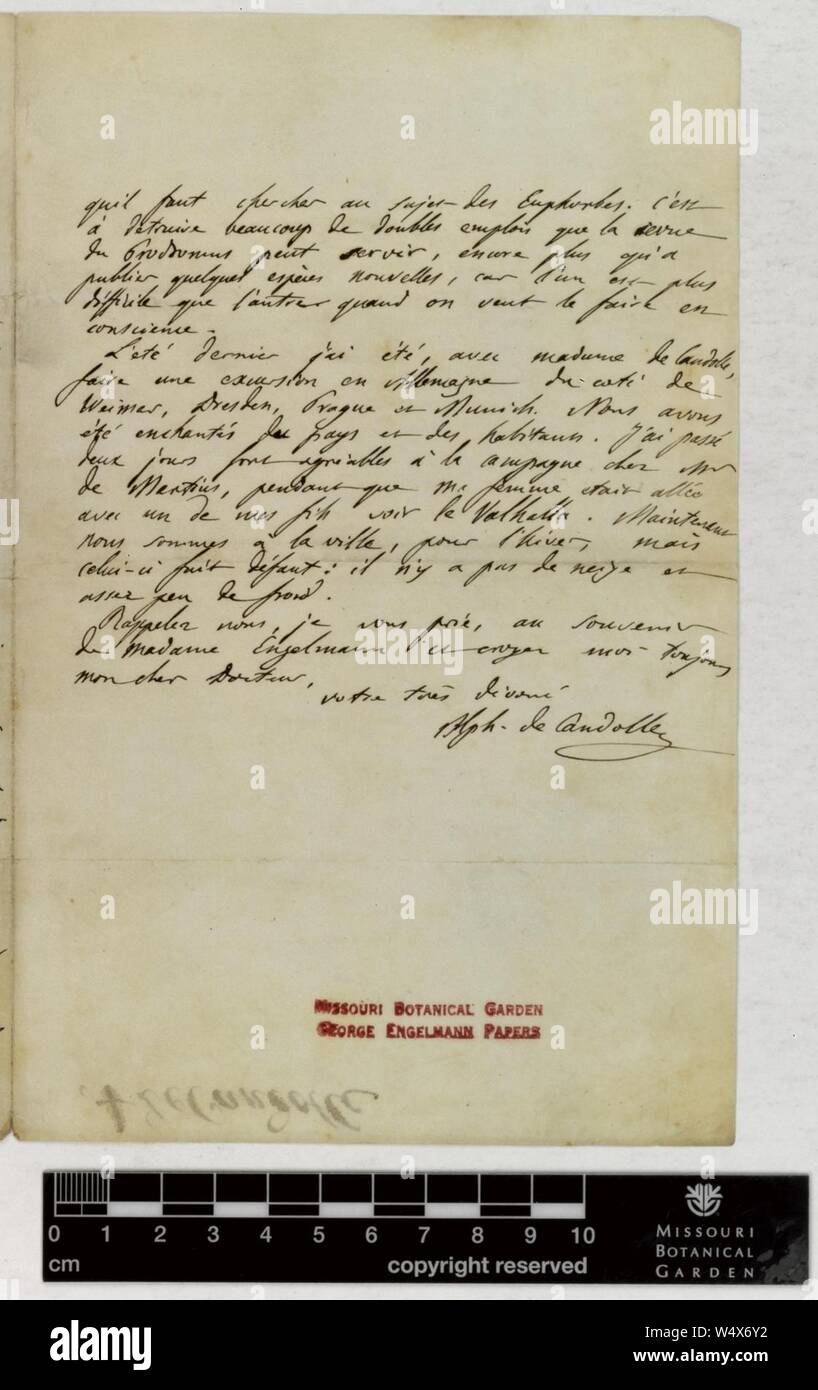 qu'il faut chercher au sujet des Euphorbes. C'est
à détruire beaucoup de doubles emplois que la revue
du Prodromus peut servir, encore plus qu'à
publier quelques espèces nouvelles, car l'un est plus
difficile que l'autre quand on veut le faire en
conscience.
L'été dernier j'ai été, avec madame de Candolle,
faire une excursion en Allemagne du coté de
Weimar, Dresden, Prague et Munich. Nous avons
été enchantés du pays et des habitans. J'ai passé
deux jours fort agréables à la campagne chez Mr
de Martius, pendant que ma femme était allée
avec un de mes fils voir le Valhalla. Maintenant
nous sommes à la ville, pour l'hiver, mais
celui-ci fait défaut: il n'y a pas de neige et
assez peu de froid.
Rappelez nous, je vous prie, au souvenir
de madame Engelmann et croyez moi toujours
mon cher Docteur,
votre très dévoué
Alph. de Candolle
MISSOURI BOTANICAL GARDEN
GEORGE ENGELMANN PAPERS
0 1 2 3 4 5 6 7 8 9 10
cm
copyright reserved
MISSOURI
BOTANICAL
GARDEN
alamy
alamy
alamy
a
alamy
Image ID: W4X6Y2
www.alamy.com